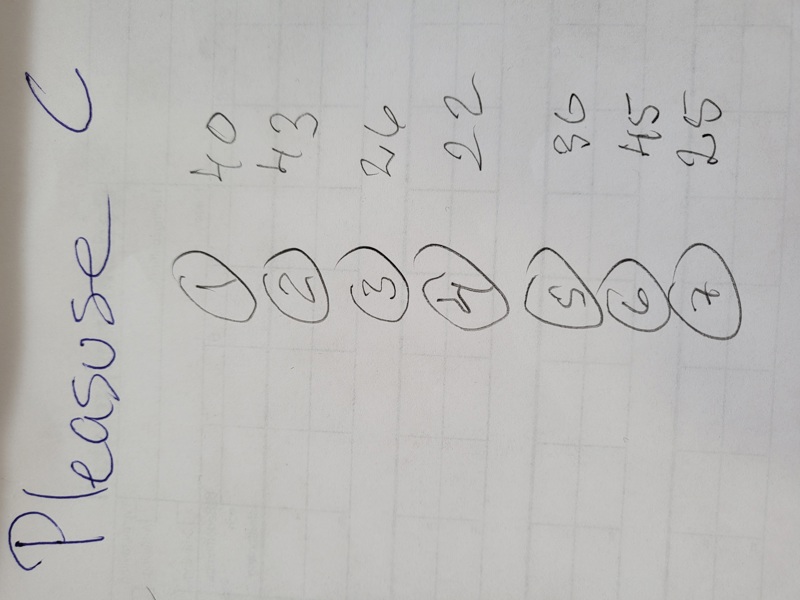 Pleasuse C
1 40
2 43
3 26
4 22
5 36
6 45
7 25